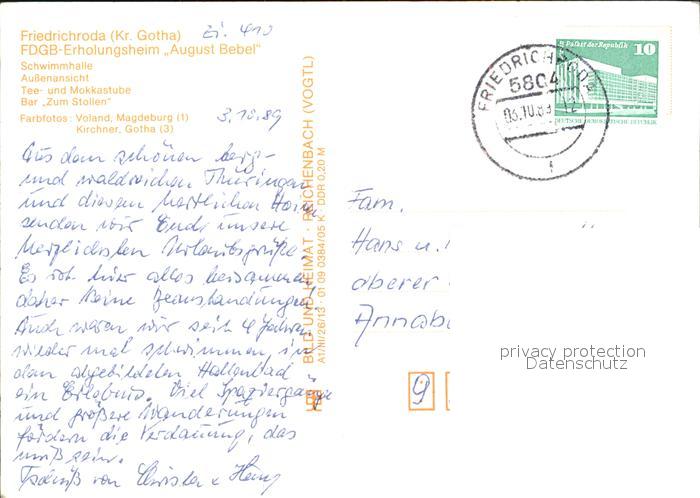 Friedrichroda (Kr. Gotha) Zi. 410
FDGB-Erholungsheim „August Bebel“
Schwimmhalle
Außenansicht
Tee- und Mokkastube
Bar „Zum Stollen“
Farbfotos: Voland, Magdeburg (1)
Kirchner, Gotha (3)
3.10.89
Aus dem schönen berg-
und waldreichen Thüringen
und diesem herrlichen Heim
senden wir Euch unsere
herzlichsten Urlaubsgrüße.
Es ist hier alles beisammen,
daher keine Beanstandungen.
Auch waren wir seit 4 Jahren
wieder mal schwimmen, in
dem abgebildeten Hallenbad
ein Erlebnis. Viel Spaziergänge
und größere Wanderungen
fördern die Verdauung, das
muß sein.
Tschüß von Christa u. Heinz
BILD UND HEIMAT · REICHENBACH (VOGTL)
A1/NI/26/13 01 09 0384/05 K DDR 0,20 M
FRIEDRICHRODA
5804
03.10.89
1
Palast der Republik 10
DEUTSCHE DEMOKRATISCHE REPUBLIK
Fam.
Hans u.
oberer
Annab
9
privacy protection
Datenschutz